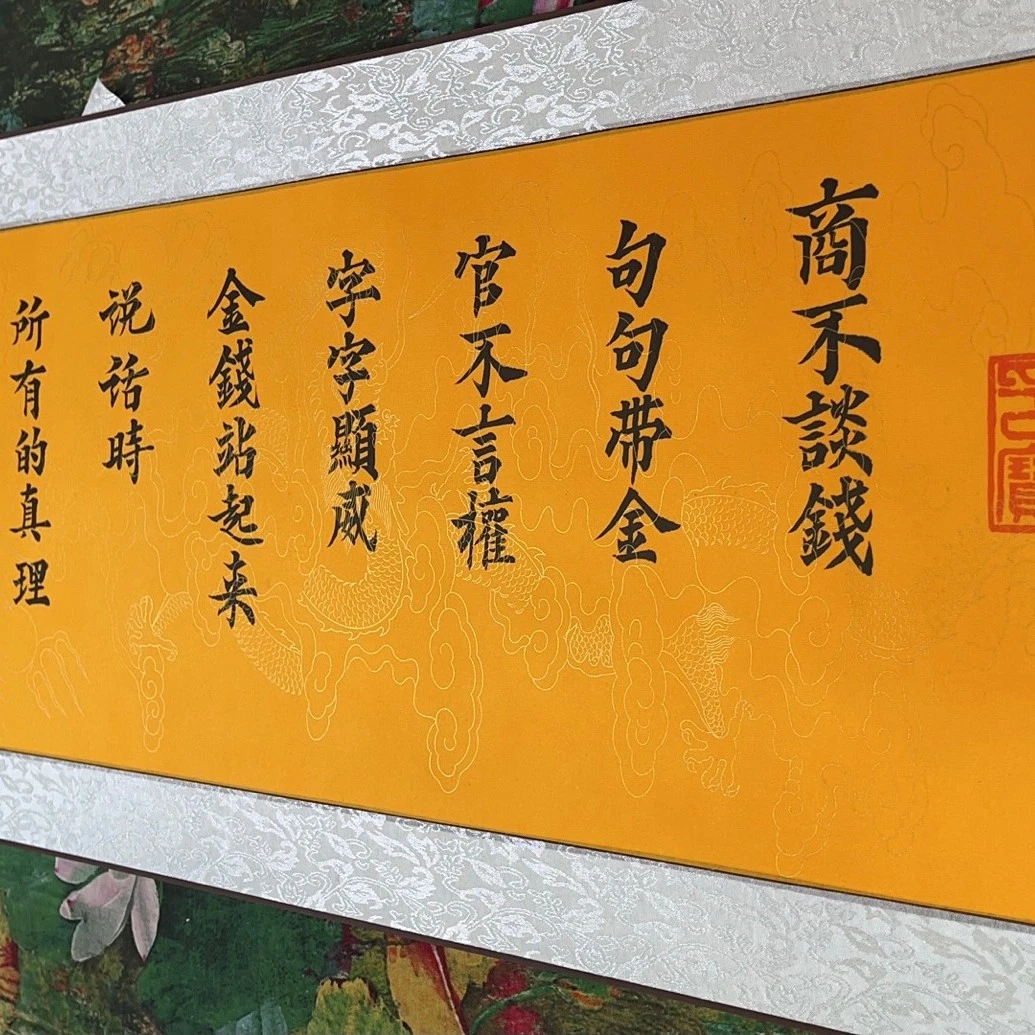 商不談錢
句句带金
官不言權
字字顯威
金錢站起来
说话時
所有的真理